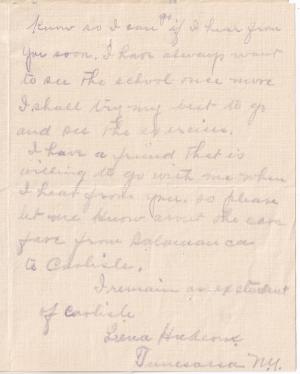 know so I can go if I hear from
you soon. I have always want
to see the school once more
I shall try my best to go
and see the exercises.
I have a friend that is
willing to go with me when
I hear from you. so please
let me know about the care
fare from Salamanca
to Carlisle.
I remain an exstudent
of Carlisle
Lena
Tunesassa N.Y.